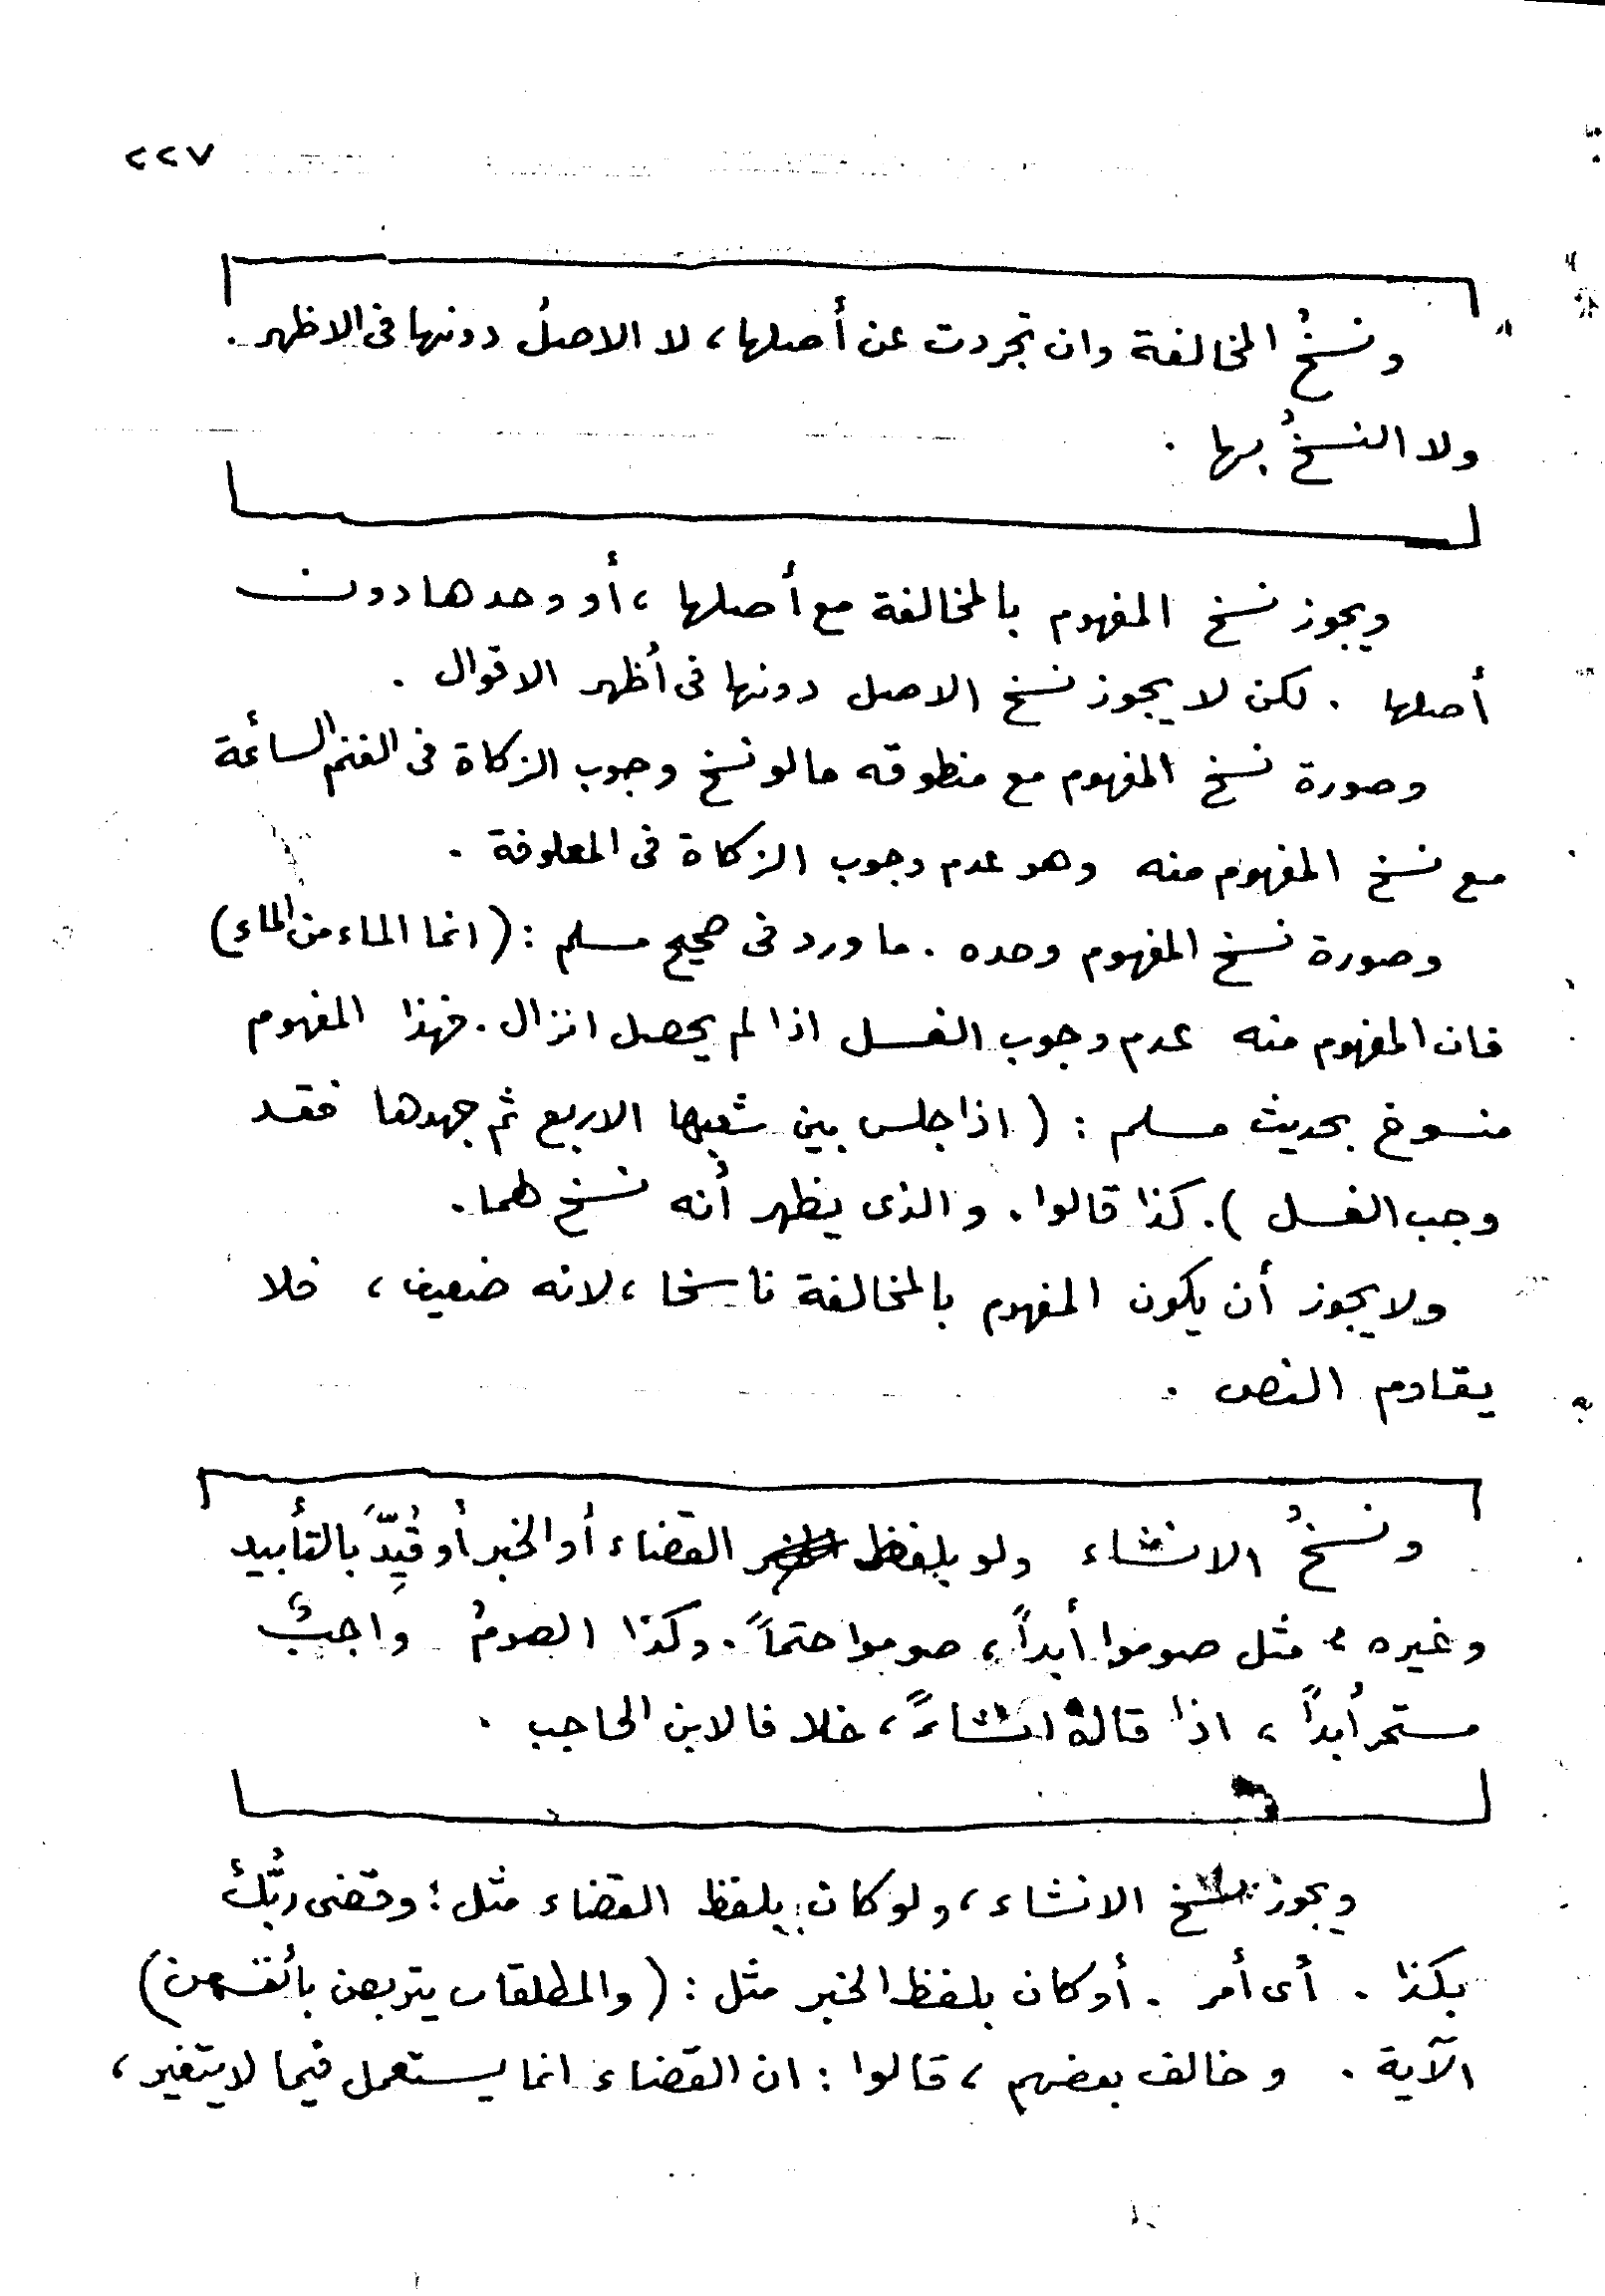 ٢٢٧
ونسخُ المخالفة وان تجردت عن أصلها، لا الاصلُ دونها فى الاظهر.
ولا النسخُ بها.
ويجوز نسخ المفهوم بالمخالفة مع أصلها، أو وحدها دون
أصلها. لكن لا يجوز نسخ الاصل دونها فى أظهر الاقوال.
وصورة نسخ المفهوم مع منطوقه ما لو نسخ وجوب الزكاة فى الغنم السائمة
مع نسخ المفهوم منه وهو عدم وجوب الزكاة فى المعلوفة.
وصورة نسخ المفهوم وحده. ما ورد فى صحيح مسلم: (انما الماء من الماء)
فان المفهوم منه عدم وجوب الغسل اذا لم يحصل انزال. فهذا المفهوم
منسوخ بحديث مسلم: (اذا جلس بين شعبها الاربع ثم جهدها فقد
وجب الغسل). كذا قالوا. والذى يظهر أنه نسخ لهما.
ولا يجوز أن يكون المفهوم بالمخالفة ناسخا، لانه ضعيف، فلا
يقاوم النص.
ونسخُ الانشاء ولو بلفظ القضاء أو الخبر أو قُيِّدَ بالتأبيد
وغيره، مثل صوموا أبداً، صوموا حتماً. وكذا الصومُ واجبٌ
مستمر أبداً، اذا قاله انشاءً، خلافا لابن الحاجب.
ويجوز نسخ الانشاء، ولو كان بلفظ القضاء مثل: وقضى ربُّك
بكذا. أى أمر. أو كان بلفظ الخبر مثل: (والمطلقات يتربصن بأنفسهن)
الآية. وخالف بعضهم، قالوا: ان القضاء انما يستعمل فيما لا يتغير،